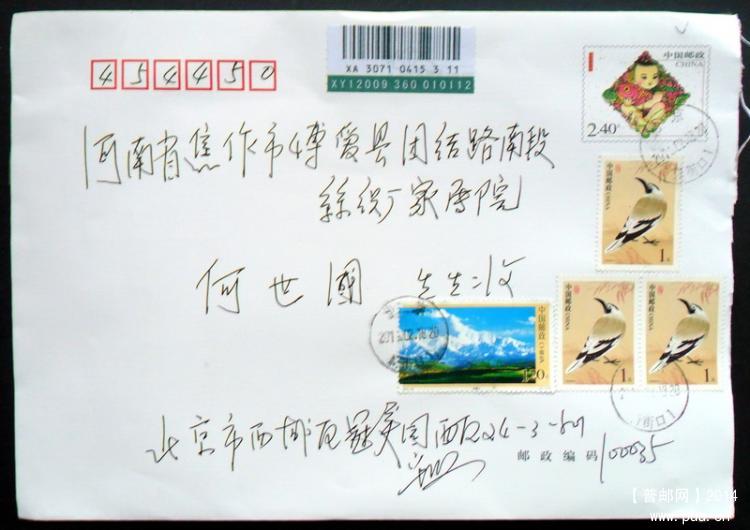 454450
XA 3071 0415 3 11
XY12009 360 010112
中国邮政
CHINA
2.40元
河南省焦作市博爱县团结路南段
丝织厂家属院
何世国 先生收
中国邮政 CHINA
1元
中国邮政 CHINA
120
中国邮政 CHINA
1元
中国邮政 CHINA
1元
北京市西城区冠英园西区24-3-601
邮政编码 100035
【普邮网】2014
www.puu.cn